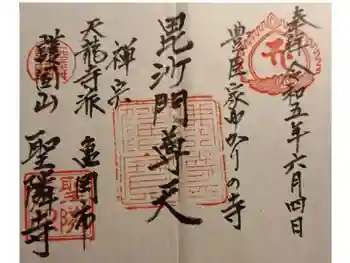 奉拝 令和五年六月四日
豊臣家ゆかりの寺
毘沙門尊天
禅宗
天龍寺派 亀岡市
護国山 聖隣寺
聖隣寺